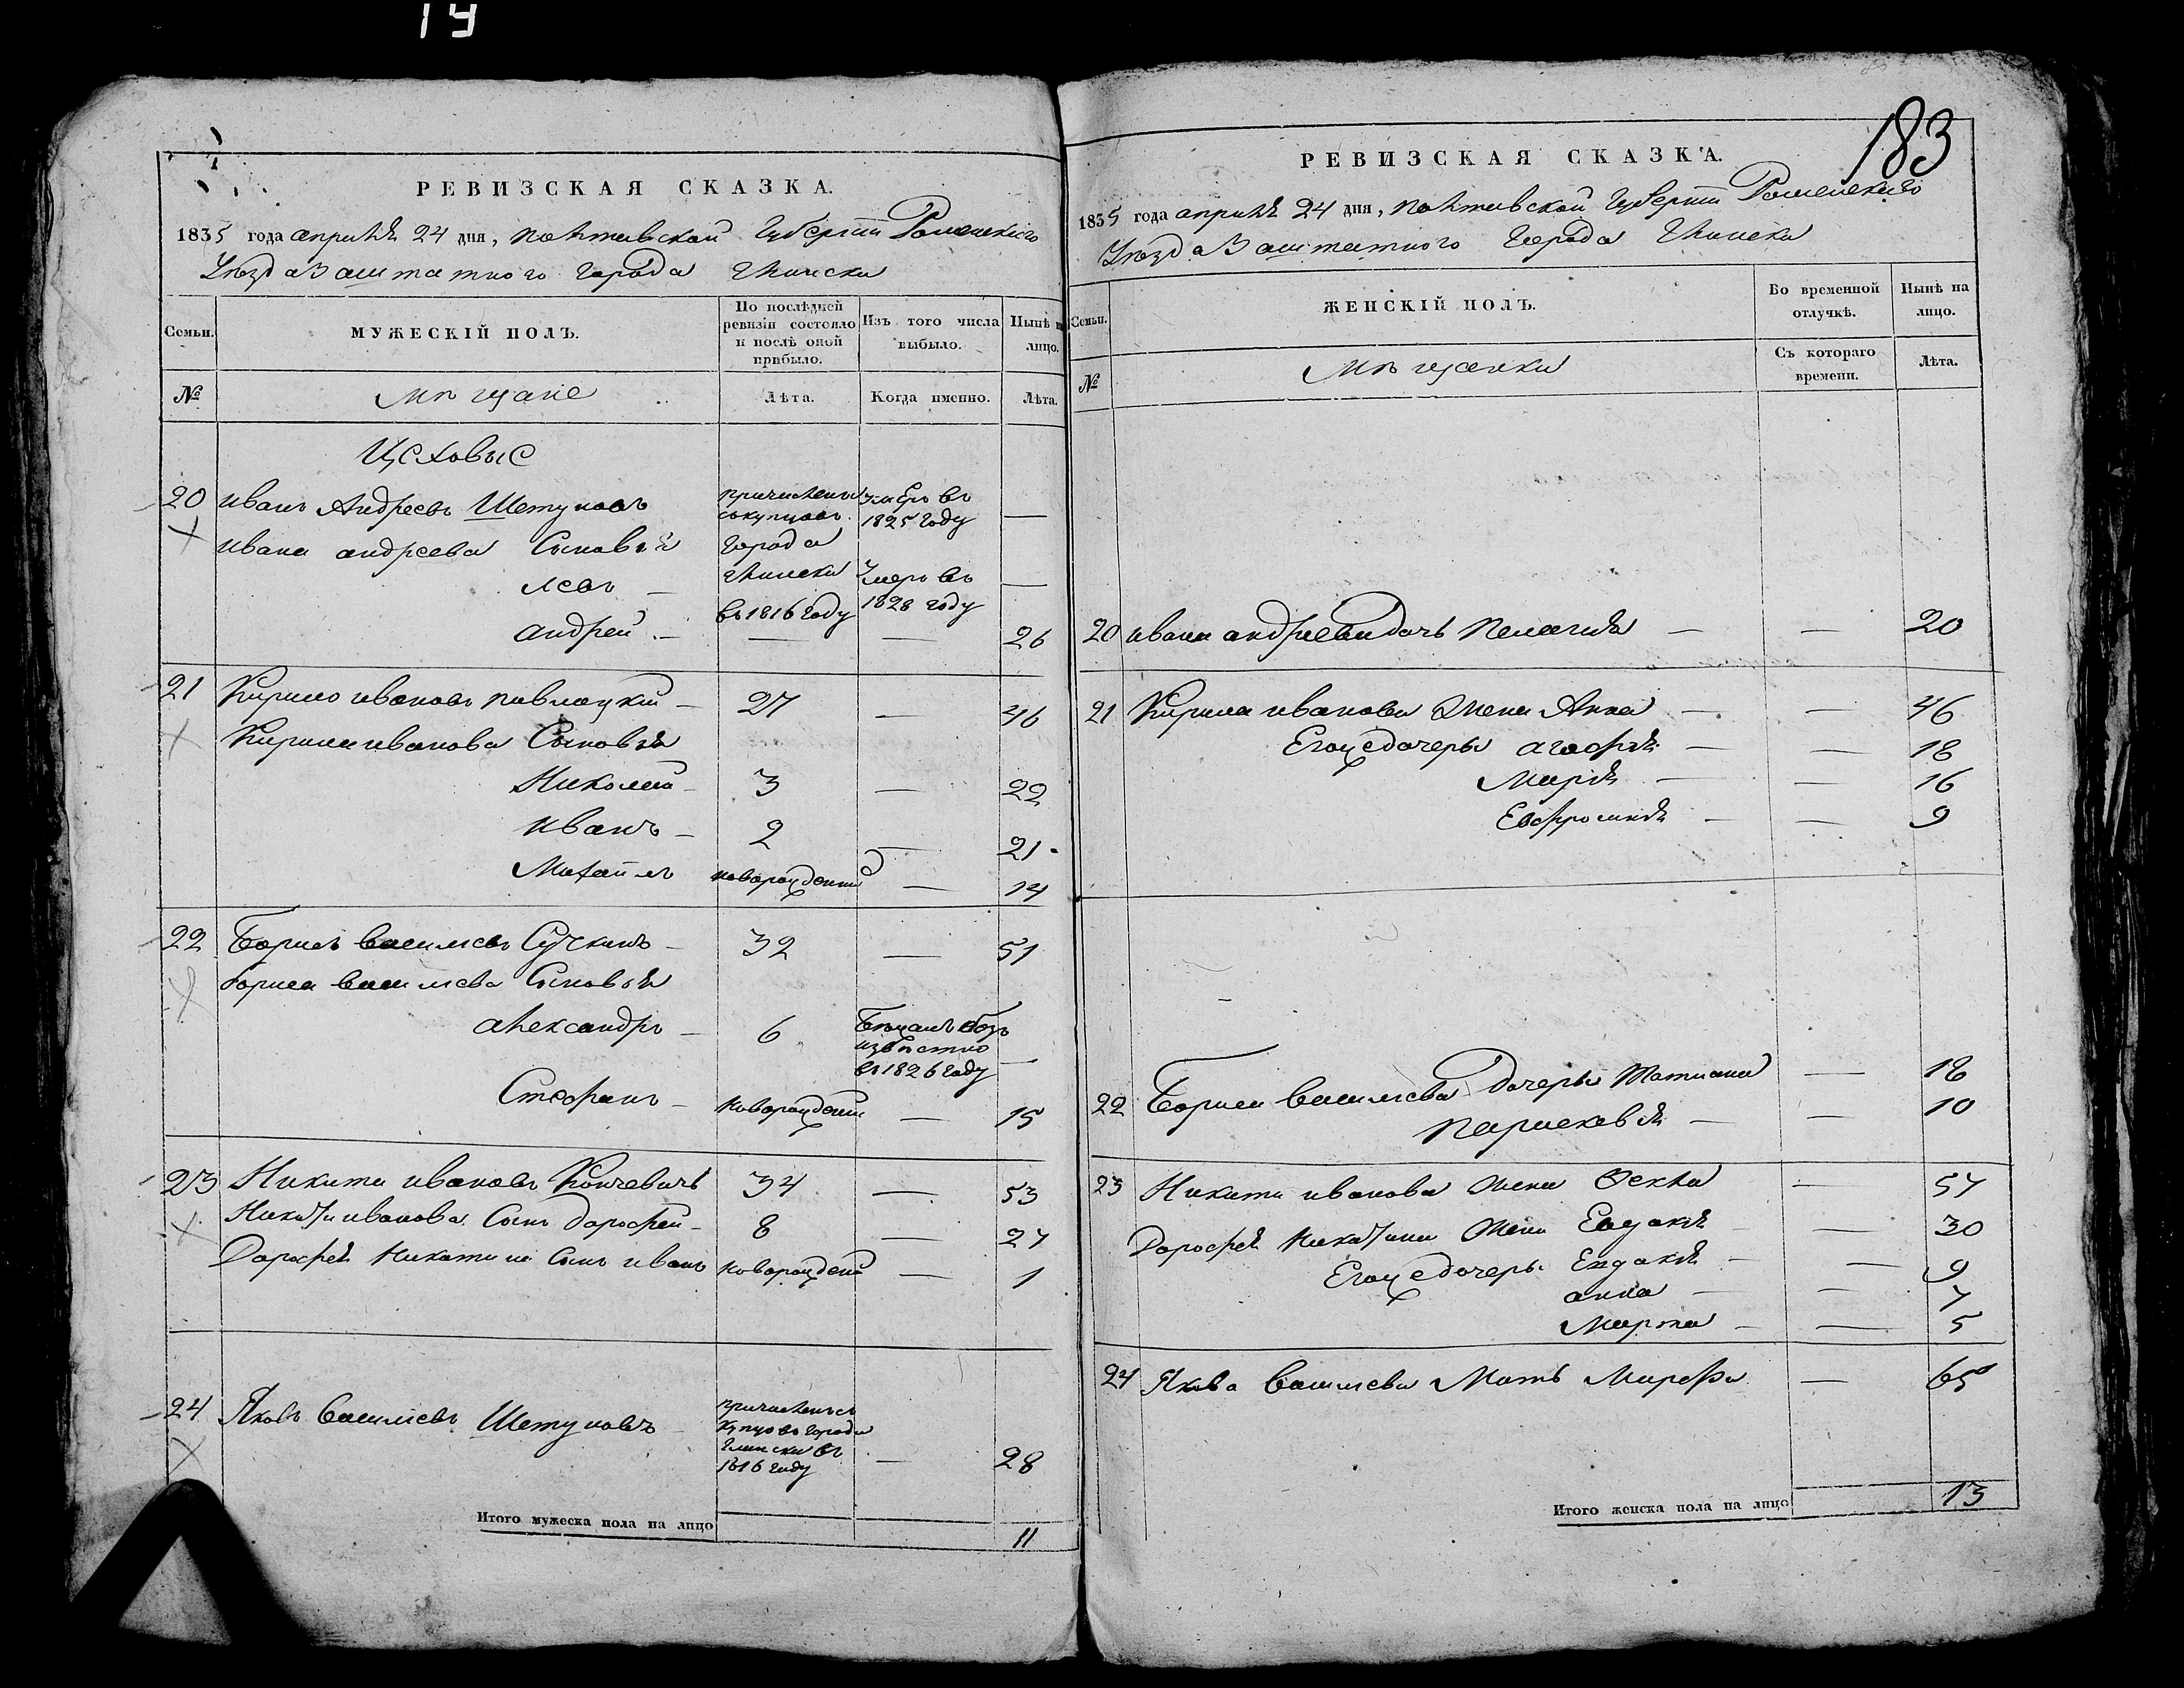 19
РЕВИЗСКАЯ СКАЗКА.
1835 года апрѣля 24 дня, Полтавской Губерніи Роменскаго
Уѣзда Заштатного Города Глинска
Семьи.
МУЖЕСКІЙ ПОЛЪ.
По послѣдней ревизіи состояло и послѣ оной прибыло.
Изъ того числа выбыло.
Нынѣ на лицо.
№
Мѣщане
Лѣта.
Когда именно.
Лѣта.
Цеховые
20 Иванъ Андреевъ Шетуновъ
причислены съ купцовъ Города Глинска въ 1816 году
умеръ въ 1825 Году —
Ивана Андреева Сыновья
Левъ — умеръ въ 1828 году —
Андрей — — — 26
21 Кирило Ивановъ Павлоцкій — 27 — 46
Кирила Иванова Сыновья
Николай — 3 — 22
Иванъ — 2 — 21
Михайлъ новорожденный — 14
22 Борисъ Васильевъ Сучкинъ — 32 — 51
Бориса Васильева Сыновья
Александръ — 6 Бѣжалъ безъ извѣстно въ 1826 Году —
Стефанъ — новорожденный — 15
23 Никита Ивановъ Кончевичъ 34 — 53
Никиты Иванова Сынъ Дорофей — 8 — 27
Дорофея Никитина Сынъ Иванъ новорожденный — 1
24 Яковъ Васильевъ Шетуновъ причисленъ съ Купцовъ Города Глинска въ 1816 Году — 28
Итого мужеска пола на лицо 11
183
РЕВИЗСКАЯ СКАЗКА.
1835 года апрѣля 24 дня, Полтавской Губерніи Роменскаго
Уѣзда Заштатного Города Глинска
Семьи.
ЖЕНСКІЙ ПОЛЪ.
Во временной отлучкѣ.
Нынѣ на лицо.
№
Мѣщанки
Съ котораго времени.
Лѣта.
20 Ивана Андреева дочь Пелагия — — 20
21 Кирила Иванова Жена Анна — — 46
Егоже дочеры Агафия — — 18
Мария — — 16
Евфросиния — — 9
22 Бориса Васильева Дочеры Татиана — 18
Парасковия — — 10
23 Никиты Иванова Жена Фекла — 57
Дорофея Никитина Жена Евдокия — 30
Егоже дочеры Евдокия — — 9
Анна — — 7
Марта — — 5
24 Якова Васильева Мать Марфа — 65
Итого женска пола на лицо 13